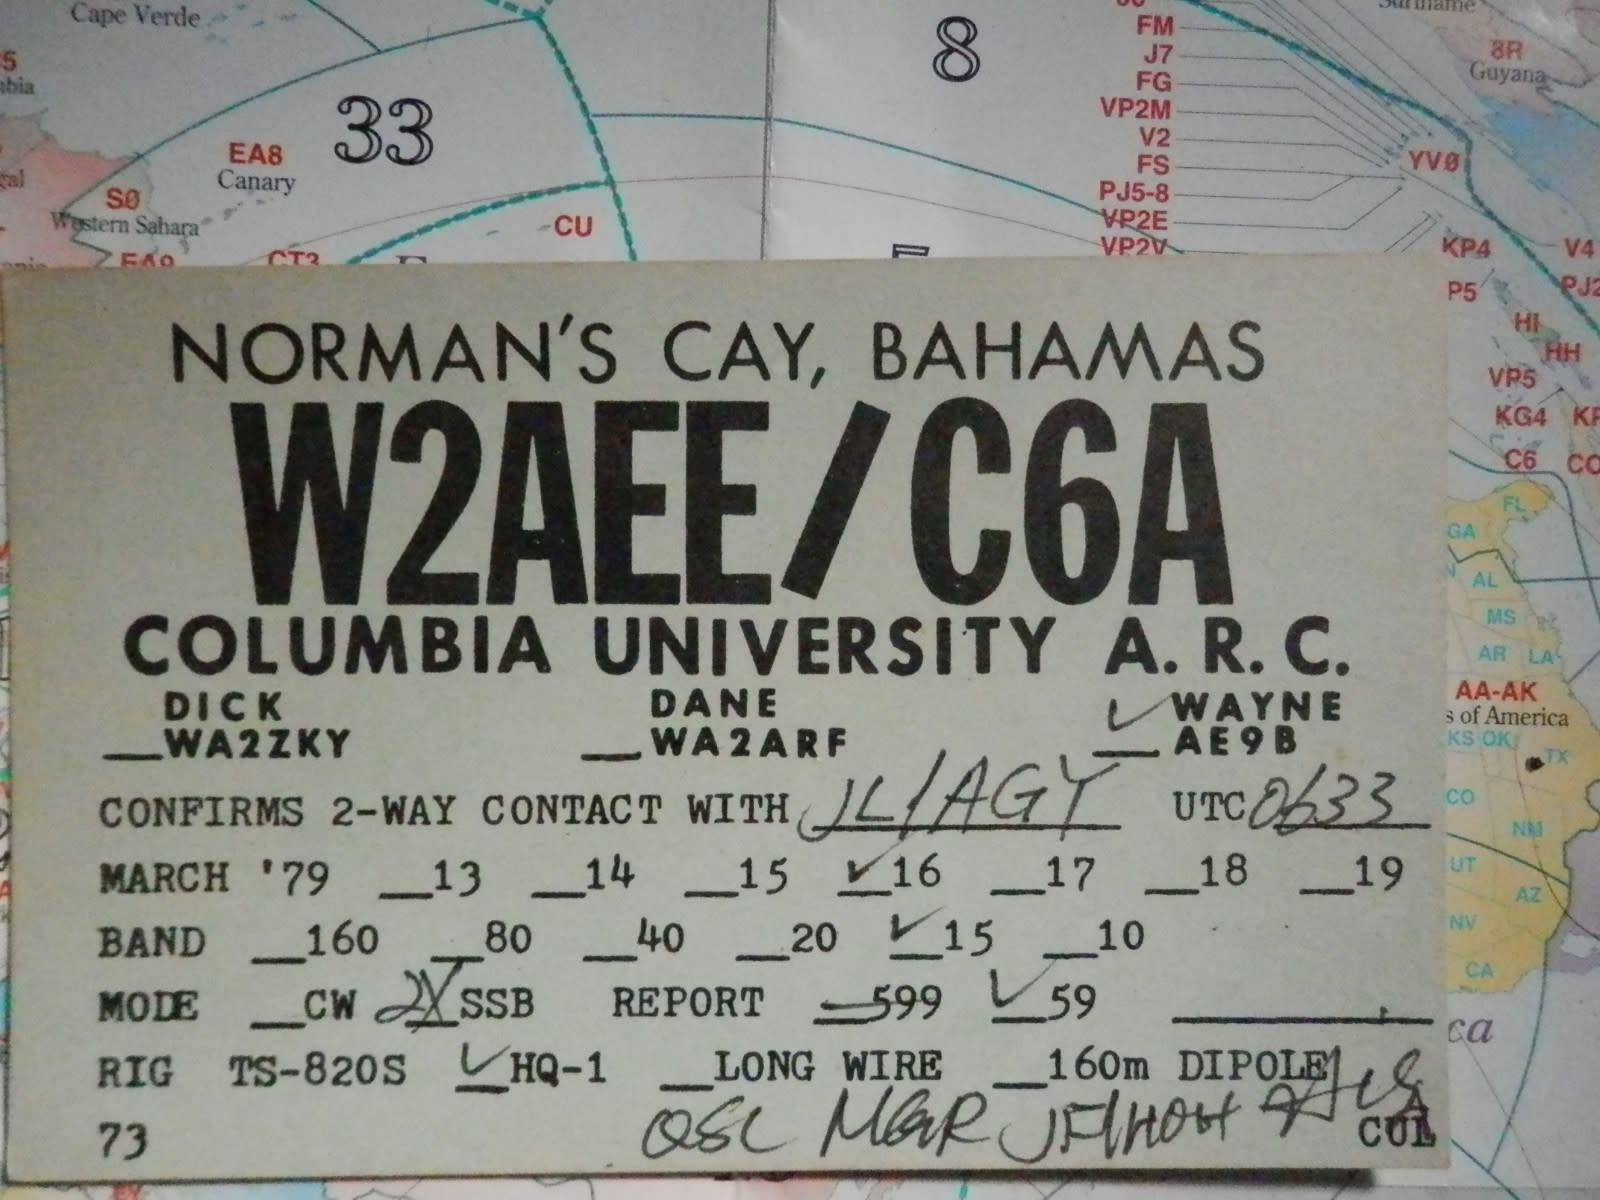 Cape Verde
33
EA8
Canary
S0
Western Sahara
CT3
CU
8
FM
J7
FG
VP2M
V2
FS
PJ5-8
VP2E
VP2V
YV0
8R
Guyana
KP4
V4
P5
PJ2
HI
HH
VP5
KG4
C6
FL
GA
AL
MS
AR LA
AA-AK
s of America
KS OK
TX
CO
NM
UT
AZ
NV
CA
ca
NORMAN'S CAY, BAHAMAS
W2AEE/C6A
COLUMBIA UNIVERSITY A. R. C.
DICK DANE ✓ WAYNE
__WA2ZKY __WA2ARF __AE9B
CONFIRMS 2-WAY CONTACT WITH JL1AGY UTC 0633
MARCH '79 __13 __14 __15 ✓16 __17 __18 __19
BAND __160 __80 __40 __20 ✓15 __10
MODE __CW 2X SSB REPORT __599 ✓59
RIG TS-820S ✓HQ-1 __LONG WIRE __160m DIPOLE
73 QSL MGR CUL